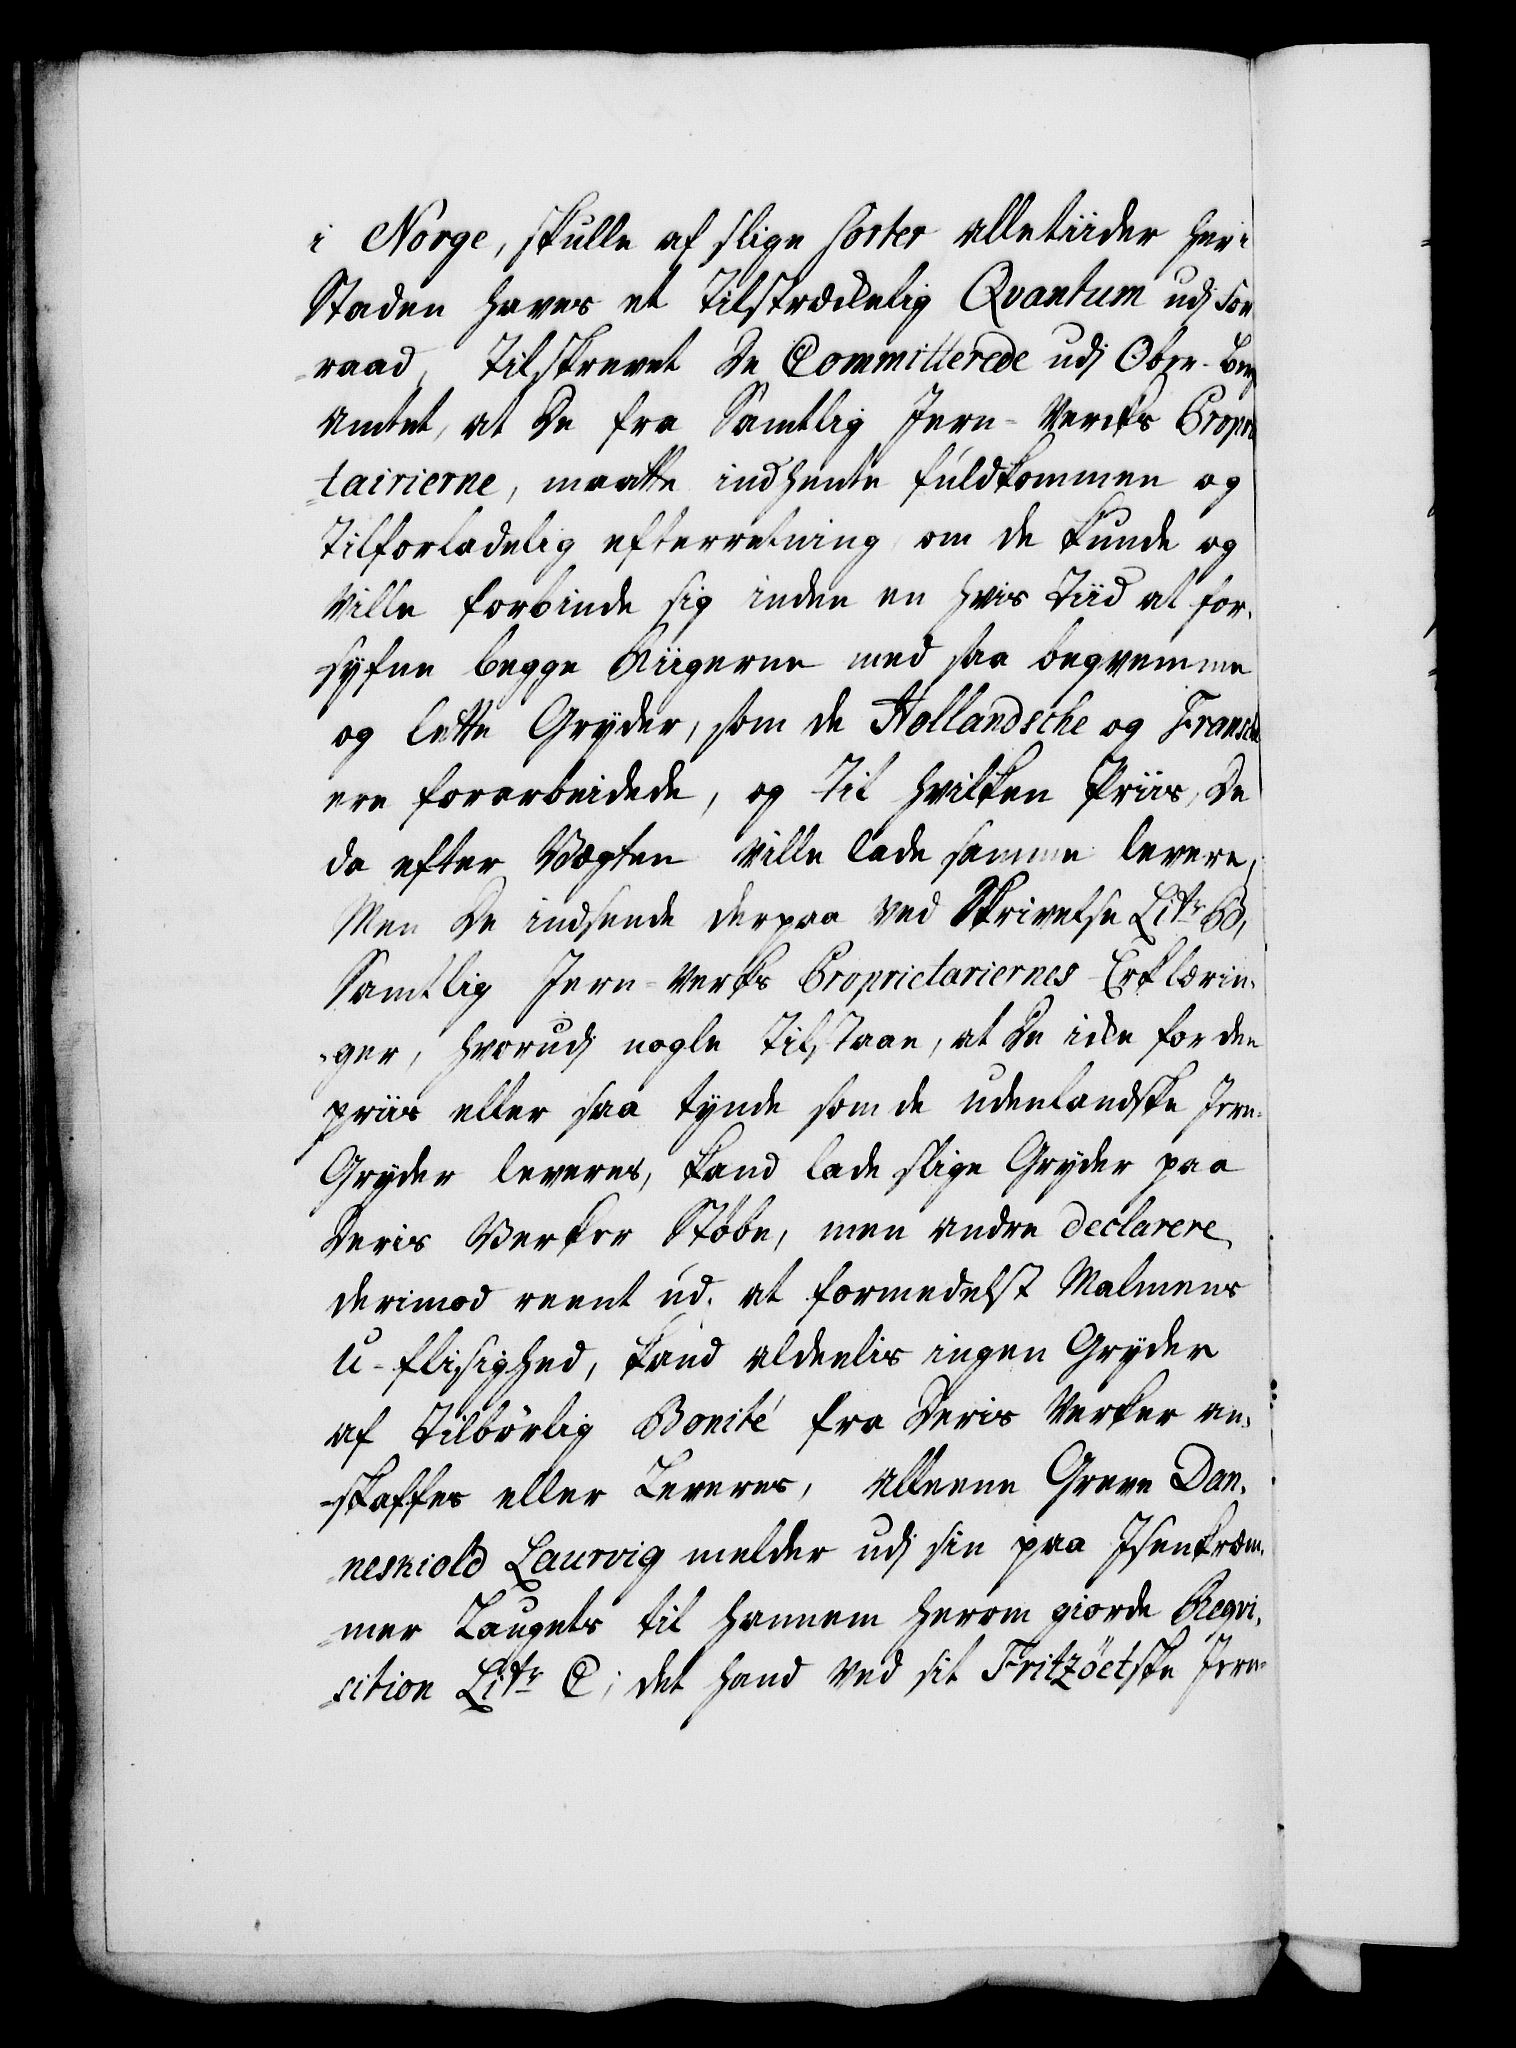 i Norge, skulle af slige Sorter alletiider her i
Staden haves et tilstræckelig Qvantum udj For
-raad, tilskrevet De Committerede udj Ober-Berg
Amtet, at De fra Samtlig Jern-Vercks Propri
-tairierne, maatte indhente fuldkommen og
tilforladelig efterretning, om de kunde og
ville forbinde sig inden en hvis Tiid at for-
-syfne begge Riigerne med saa beqvemme
og lette Gryder, som de Hollandsche og Fransche
ere forarbeidede, og til hvilken Priis, De
da efter Vægten ville lade samme levere;
Men De indsende derpaa ved Skrivelse Litr B,
Samtlig Jern-Verks Proprietariernes Erklærin-
-ger, hvorudj nogle tilstaae, at De icke for den
priis eller saa tynde som de udenlandske Jern-
Gryder leveres, kand lade slige Gryder paa
Deris Verker støbe, men andre declarere
derimod reent ud, at formedelst Malmens
U-flisighed, kand aldeelis ingen Gryder
af tilbörlig Bonité fra Deris Verker an-
-skaffes eller Leveres, alleene Greve Dan-
neskiold Laurvig melder udj sin paa Isenkræm-
-mer Laugets til hannem herom giorde Reqvi-
-sition Litr C; det hand ved sit Fritzöetske Jern-